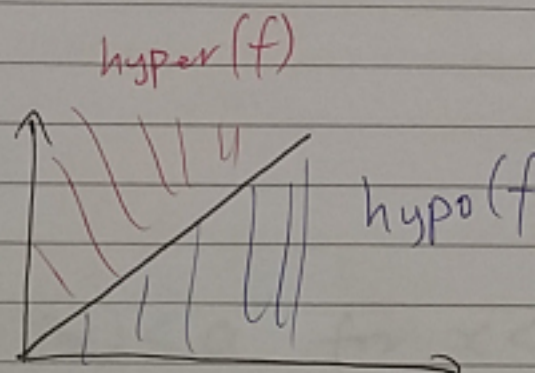 hyper(f)
hypo(f